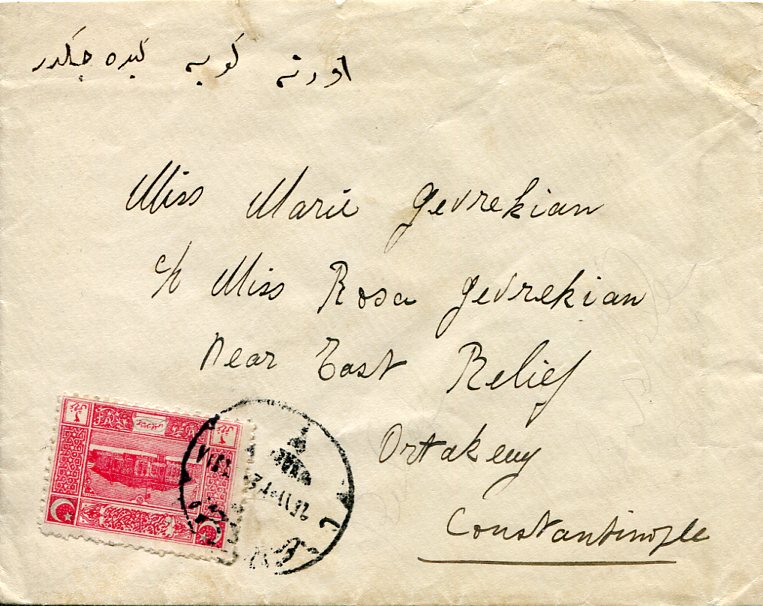 اورته كويه كيده جكدر
Miss Marie Gevrekian
c/o Miss Rosa Gevrekian
Near East Relief
Ortakeuy
Constantinople